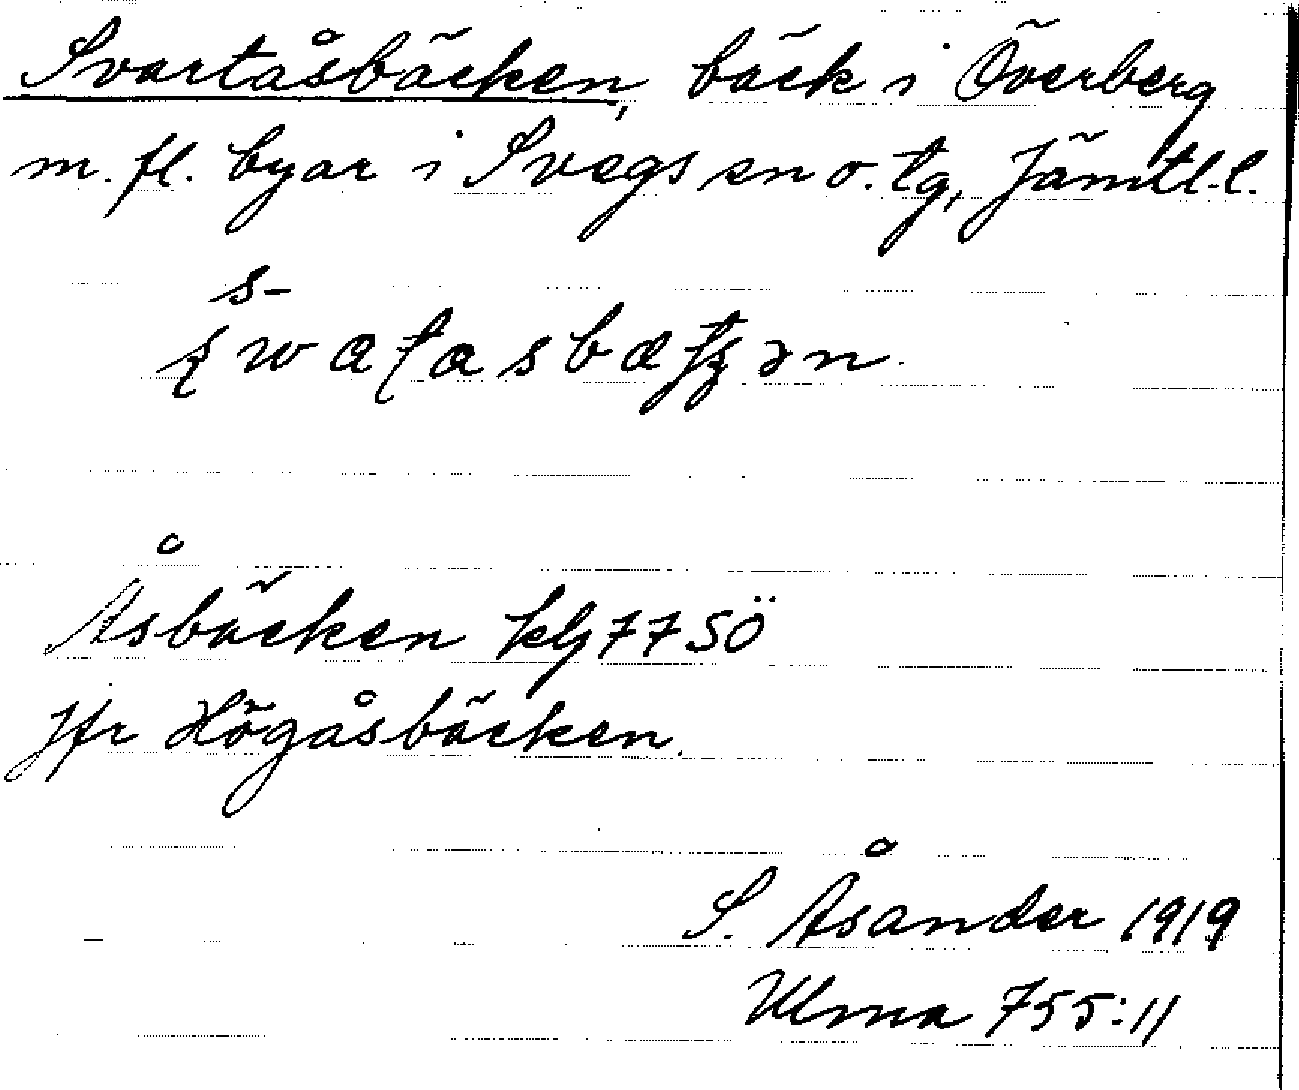 Svartåsbäcken, bäck i Överberg
m. fl. byar i Svegs sn o. tg, Jämtl. l.
s-
Åsbäcken kbl 77 SÖ
Jfr Högåsbäcken.
S. Åsander 1919
Ulma 755:11